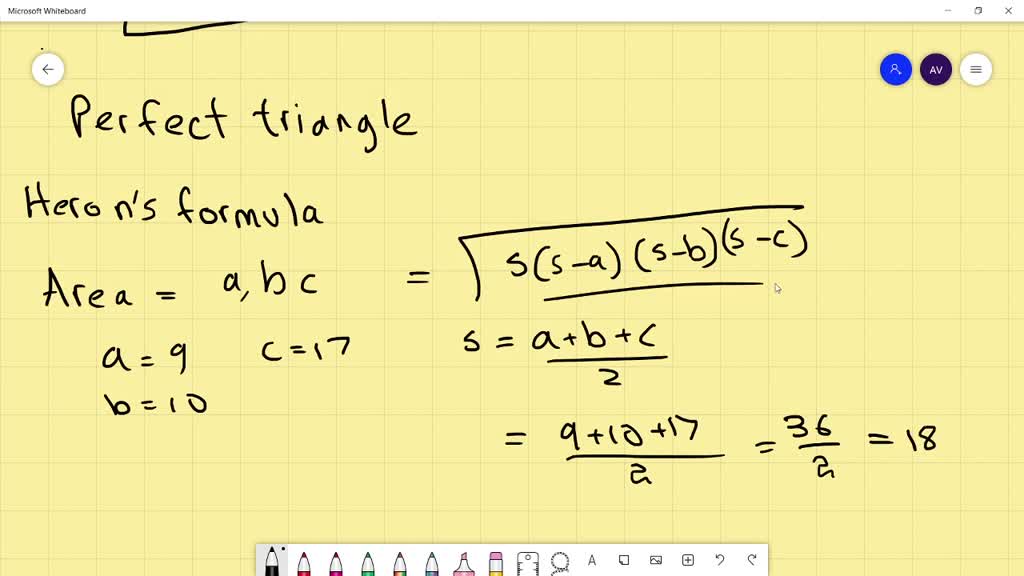 Microsoft Whiteboard
AV
Perfect triangle
Heron's formula
Area = a, b c = √s(s-a)(s-b)(s-c)
a = 9 c = 17 s = a+b+c/2
b = 10
= 9+10+17/2 = 36/2 = 18
A